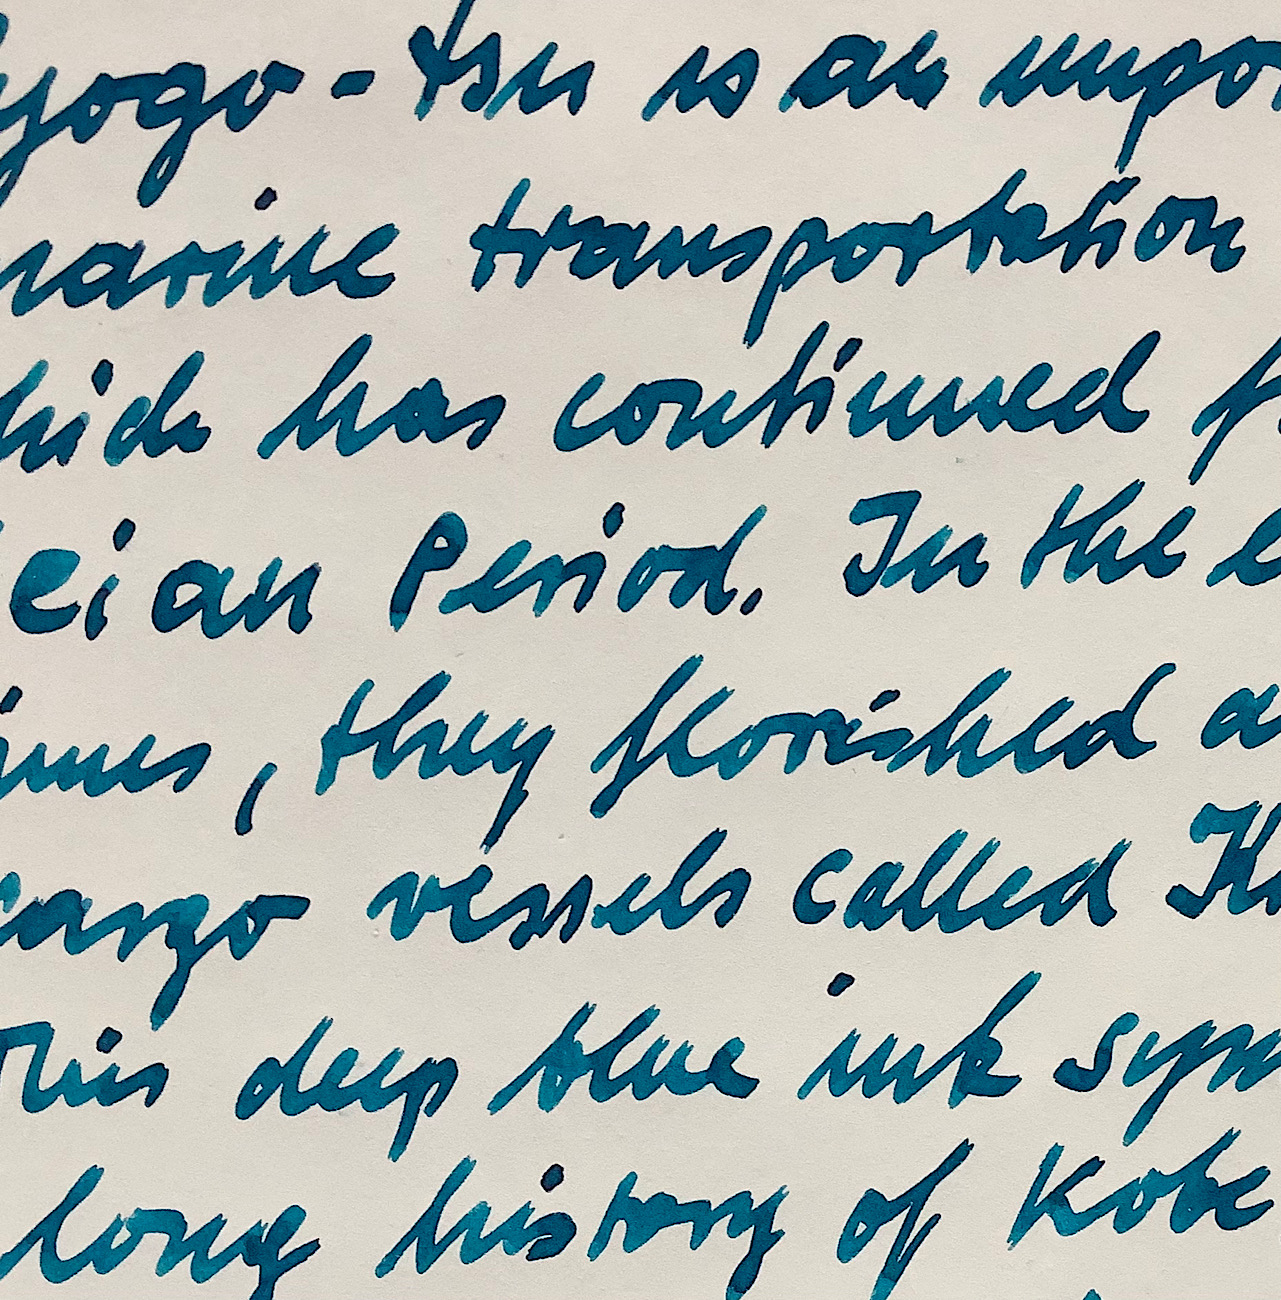 yogo - tsu is an impor
marine transportation
hich has continued f
eian Period. In the e
imes, they florished a
cargo vessels called Ki
This deep blue ink sym
long history of Kobe